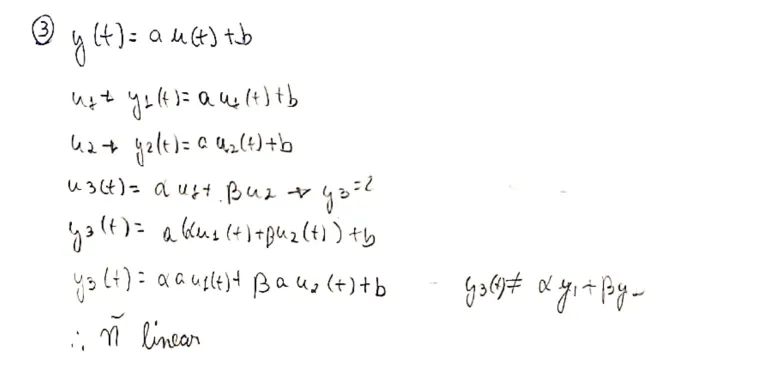 ③ y(t) = a u(t) + b
u1 → y1(t) = a u1(t) + b
u2 → y2(t) = a u2(t) + b
u3(t) = α u1 + β u2 → y3 = ?
y3(t) = a(αu1(t) + βu2(t)) + b
y3(t) = α a u1(t) + β a u2(t) + b y3(t) ≠ α y1 + β y
∴ ñ linear